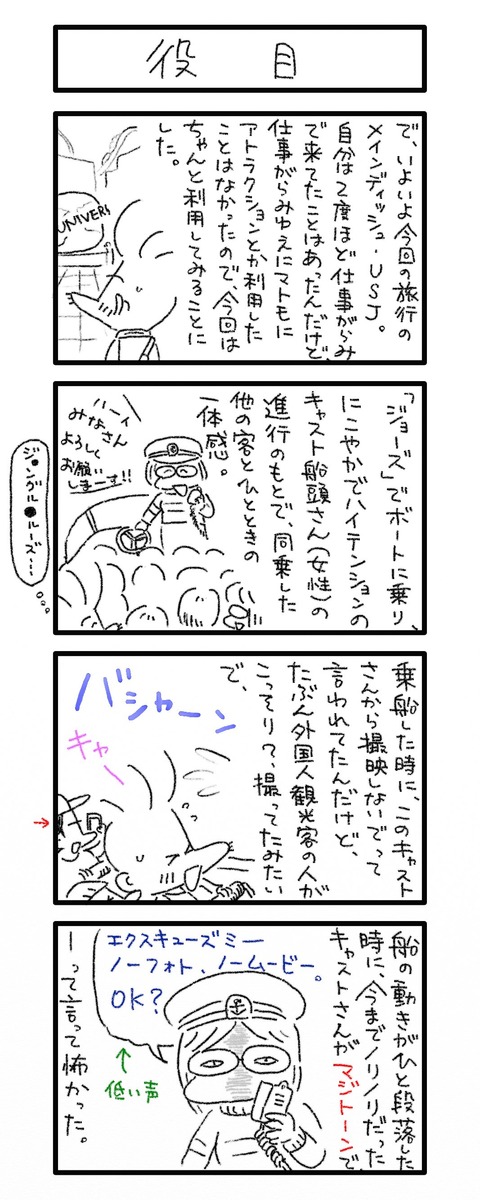 役目
で、いよいよ今回の旅行の
メインディッシュ・USJ。
自分は2度ほど仕事がらみ
で来てたことはあったんだけど、
仕事がらみゆえにマトモに
アトラクションとか利用した
ことはなかったので、今回は
ちゃんと利用してみることに
した。
UNIVERS
「ジョーズ」でボートに乗り、
にこやかでハイテンションの
キャスト船頭さん(女性)の
進行のもとで、同乗した
他の客とひとときの
一体感。
ハーイ
みなさん
よろしく
お願い
しまーす!!
ジ●ングル●ルーズ…
乗船した時に、このキャスト
さんから撮映しないでって
言われてたんだけど、
たぶん外国人観光客の人が
こっそりで、撮ってたみたい
で、
バシャーン
キャー
→
船の動きがひと段落した
時に、今までノリノリだった
キャストさんがマジトーンで、
エクスキューズミー
ノーフォト、ノームービー。
OK?
↑
低い声
ーって言って怖かった。